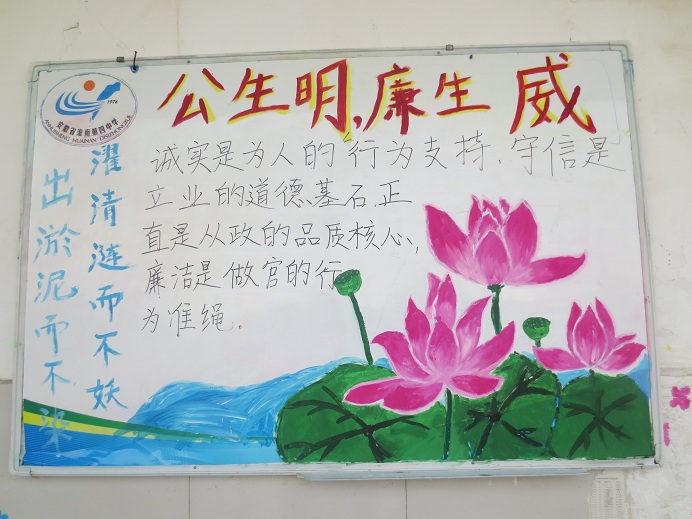 公生明,廉生威
1976
安徽省淮南第四中学
ANHUISHENG HUAINAN DISIZHONGXUE
诚实是为人的行为支持、守信是
立业的道德基石、正
直是从政的品质核心、
廉洁是做官的行
为准绳.
出淤泥而不染
濯清涟而不妖